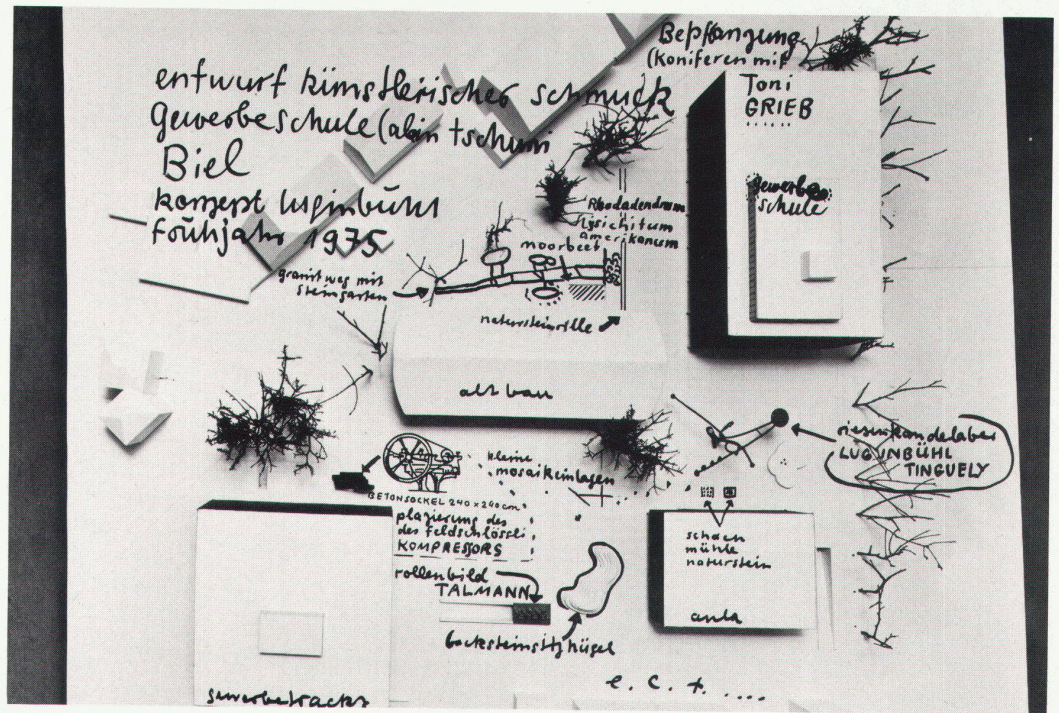 entwurf künstlerischer schmuck
gewerbeschule (alin tschumi
Biel
konzept luginbühl
frühjahr 1975
Bepflanzung
(koniferen mit
Toni
GRIEB
gewerbe
schule
Rhododendron
lysichitum
amerikanum
moorbeet
granitweg mit
steingarten
natursteinrille
altbau
riesenkandelaber
LUGINBÜHL
TINGUELY
kleine
mosaikeinlagen
BETONSOCKEL 240 x 240 cm
plazierung des
des feldschlössli
KOMPRESSORS
rollenbild
TALMANN
backsteinsitzhügel
schach
mühle
naturstein
aula
gewerbetrackt
e. c. t. ....